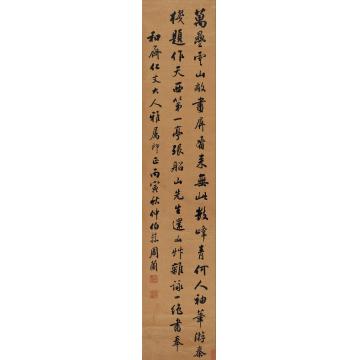 萬疊雲山敞畫屏看來無此數峰青何人袖筆游秦
棧題作天西第一亭張船山先生還山艸雜詠一絕書奉
和齋仁丈大人雅屬即正丙寅秋仲伯蓀周蘭